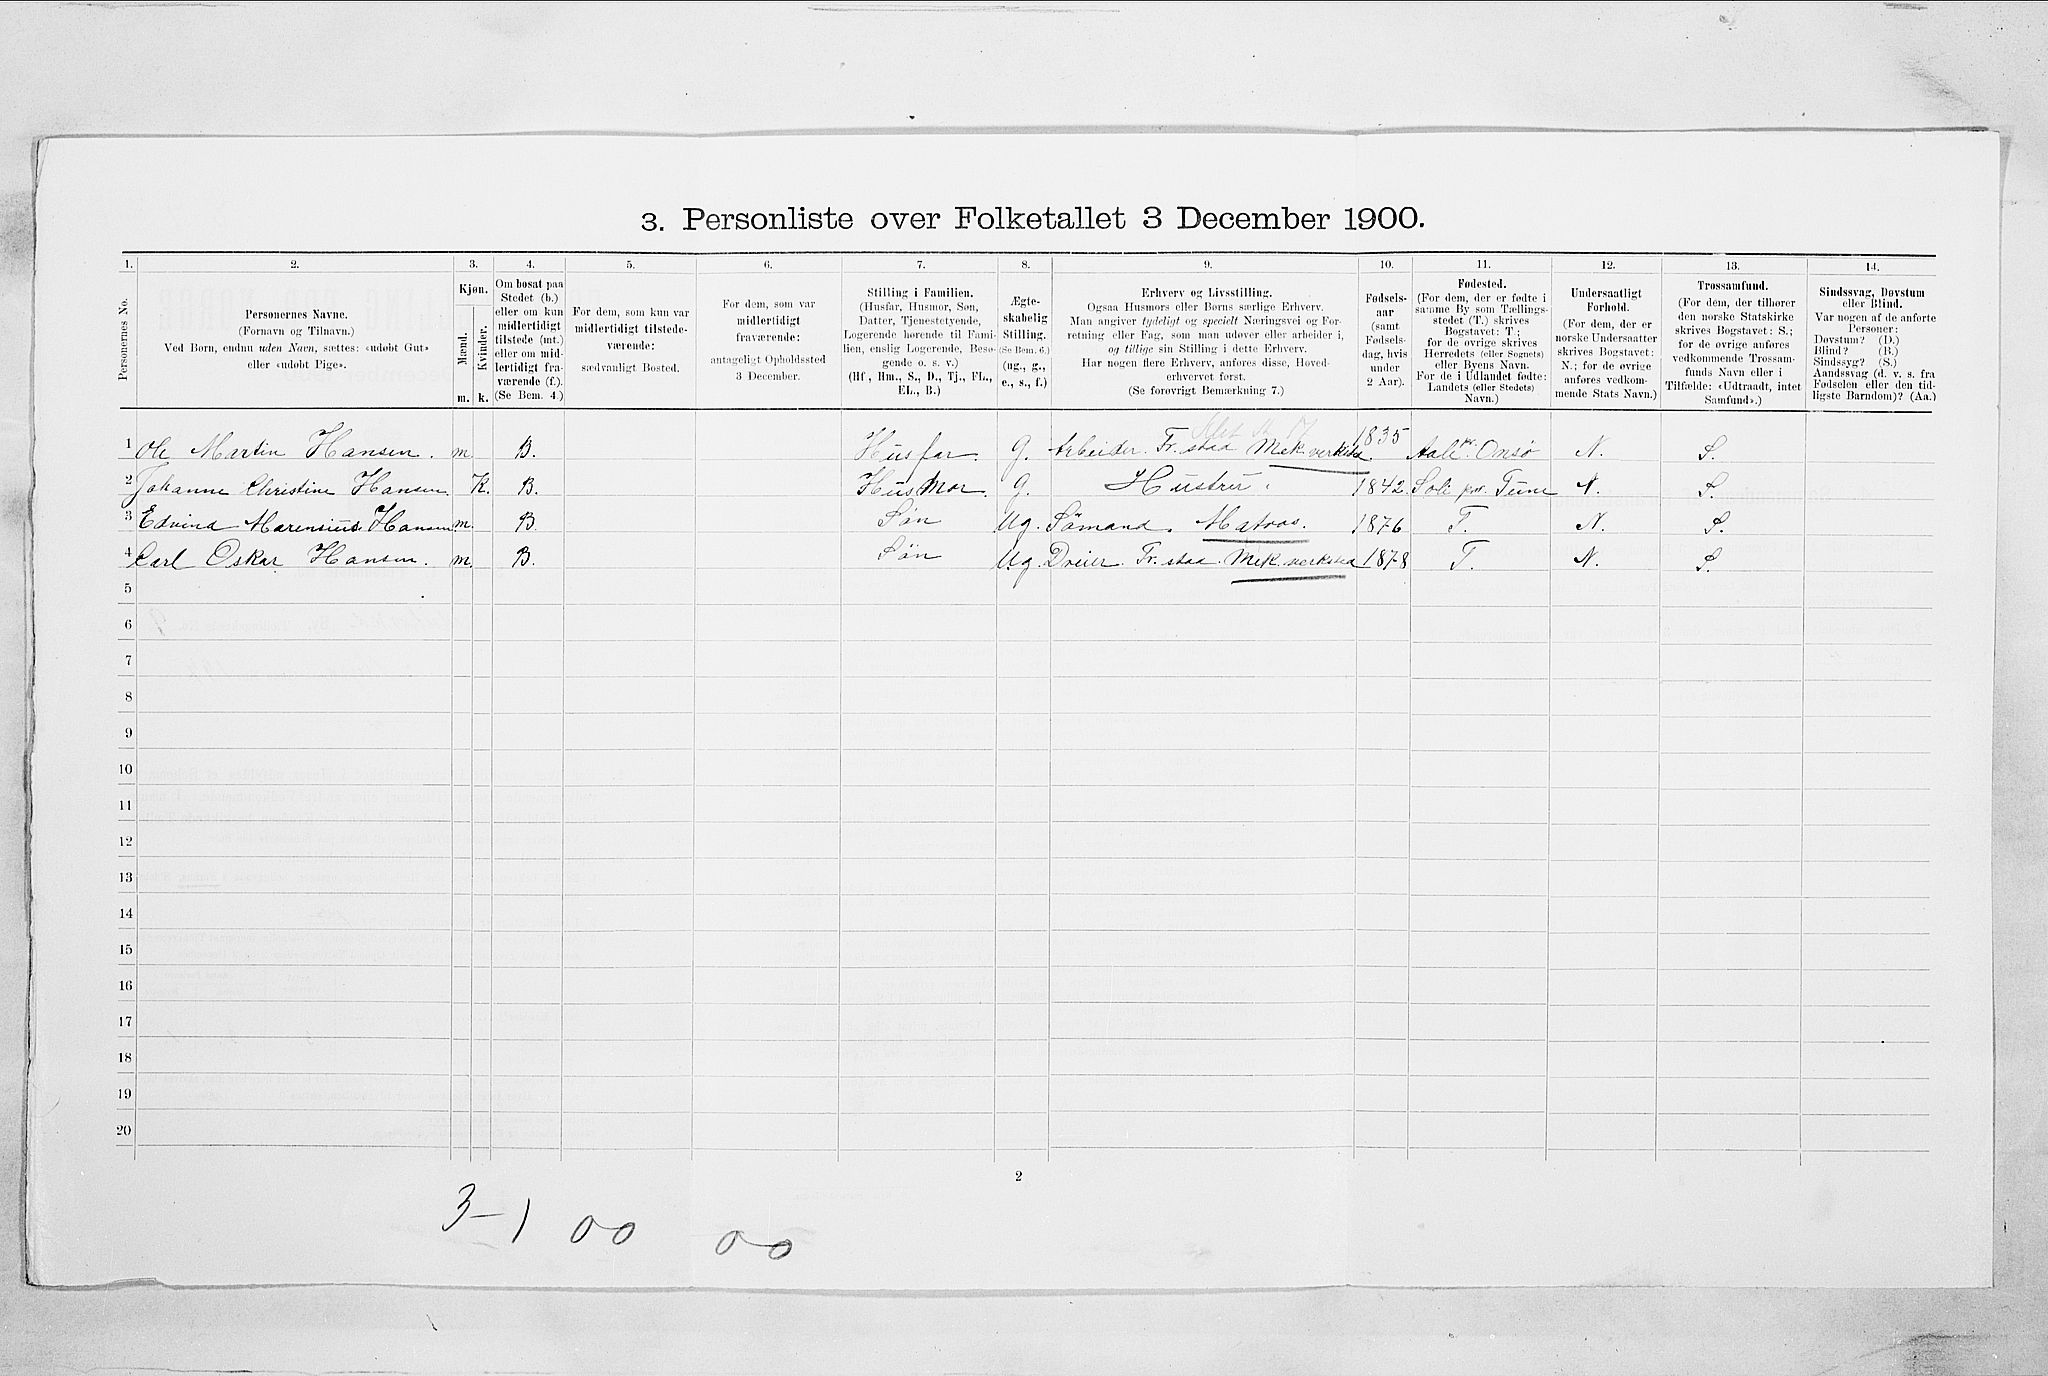 3. Personliste over Folketallet 3 December 1900.
1. 2. 3. 4. 5. 6. 7. 8. 9. 10. 11. 12. 13. 14.
Personernes No.
Personernes Navne.
(Fornavn og Tilnavn.)
Ved Børn, endnu uden Navn, sættes: «udøbt Gut»
eller «udøbt Pige».
Kjøn.
Mænd.
Kvinder.
m. k.
Om bosat paa
Stedet (b.)
eller om kun
midlertidigt
tilstede (mt.)
eller om mid-
lertidigt fra-
værende (f.).
(Se Bem. 4.)
For dem, som kun var
midlertidigt tilstede-
værende:
sædvanligt Bosted.
For dem, som var
midlertidigt
fraværende:
antageligt Opholdssted
3 December.
Stilling i Familien.
(Husfar, Husmor, Søn,
Datter, Tjenestetyende,
Logerende hørende til Fami-
lien, enslig Logerende, Besø-
gende o. s. v.)
(Hf, Hm., S., D., Tj., FL.,
EL., B.)
Ægte-
skabelig
Stilling.
(Se Bem. 6.)
(ug., g.,
e., s., f.)
Erhverv og Livsstilling.
Ogsaa Husmors eller Børns særlige Erhverv.
Man angiver tydeligt og specielt Næringsvei og For-
retning eller Fag, som man udøver eller arbeider i,
og tillige sin Stilling i dette Erhverv.
Har nogen flere Erhverv, anføres disse, Hoved-
erhvervet først.
(Se forøvrigt Bemærkning 7.)
Fødsels-
aar
(samt
Fødsels-
dag, hvis
under
2 Aar).
Fødested.
(For dem, der er fødte i
samme By som Tællings-
stedet (T.) skrives
Bogstavet: T.;
for de øvrige skrives
Herredets (eller Sognets)
eller Byens Navn.
For de i Udlandet fødte:
Landets (eller Stedets)
Navn.)
Undersaatligt
Forhold.
(For dem, der er
norske Undersaatter
skrives Bogstavet:
N.; for de øvrige
anføres vedkom-
mende Stats Navn.)
Trossamfund.
(For dem, der tilhører
den norske Statskirke
skrives Bogstavet: S.;
for de øvrige anføres
vedkommende Trossam-
funds Navn eller i
Tilfælde: «Udtraadt, intet
Samfund».)
Sindssvag, Døvstum
eller Blind.
Var nogen af de anførte
Personer:
Døvstum? (D.)
Blind? (B.)
Sindssyg? (S.)
Aandssvag (d. v. s. fra
Fødselen eller den tid-
ligste Barndom)? (Aa.)
1 Ole Martin Hansen. m. B. Husfar. G. Arbeider. Fr. stad Mek. verksted. 1835 Aale pr. Onsø N. S.
2 Johanne Christine Hansen. K. B. HusMor. G. Hustru. 1842. Soli pr. Tune N. S.
3 Edvind Marensius Hansen m. B. Søn Ug. Sømand. Matros. 1876 T. N. S.
4 Carl Oskar Hansen. m. B. Søn Ug. Dreier. Fr. stad. Mek. verksted 1878 T. N. S.
5
6
7
8
9
10
11
12
13
14
15
16
17
18
19
20
2
3-1 00 00